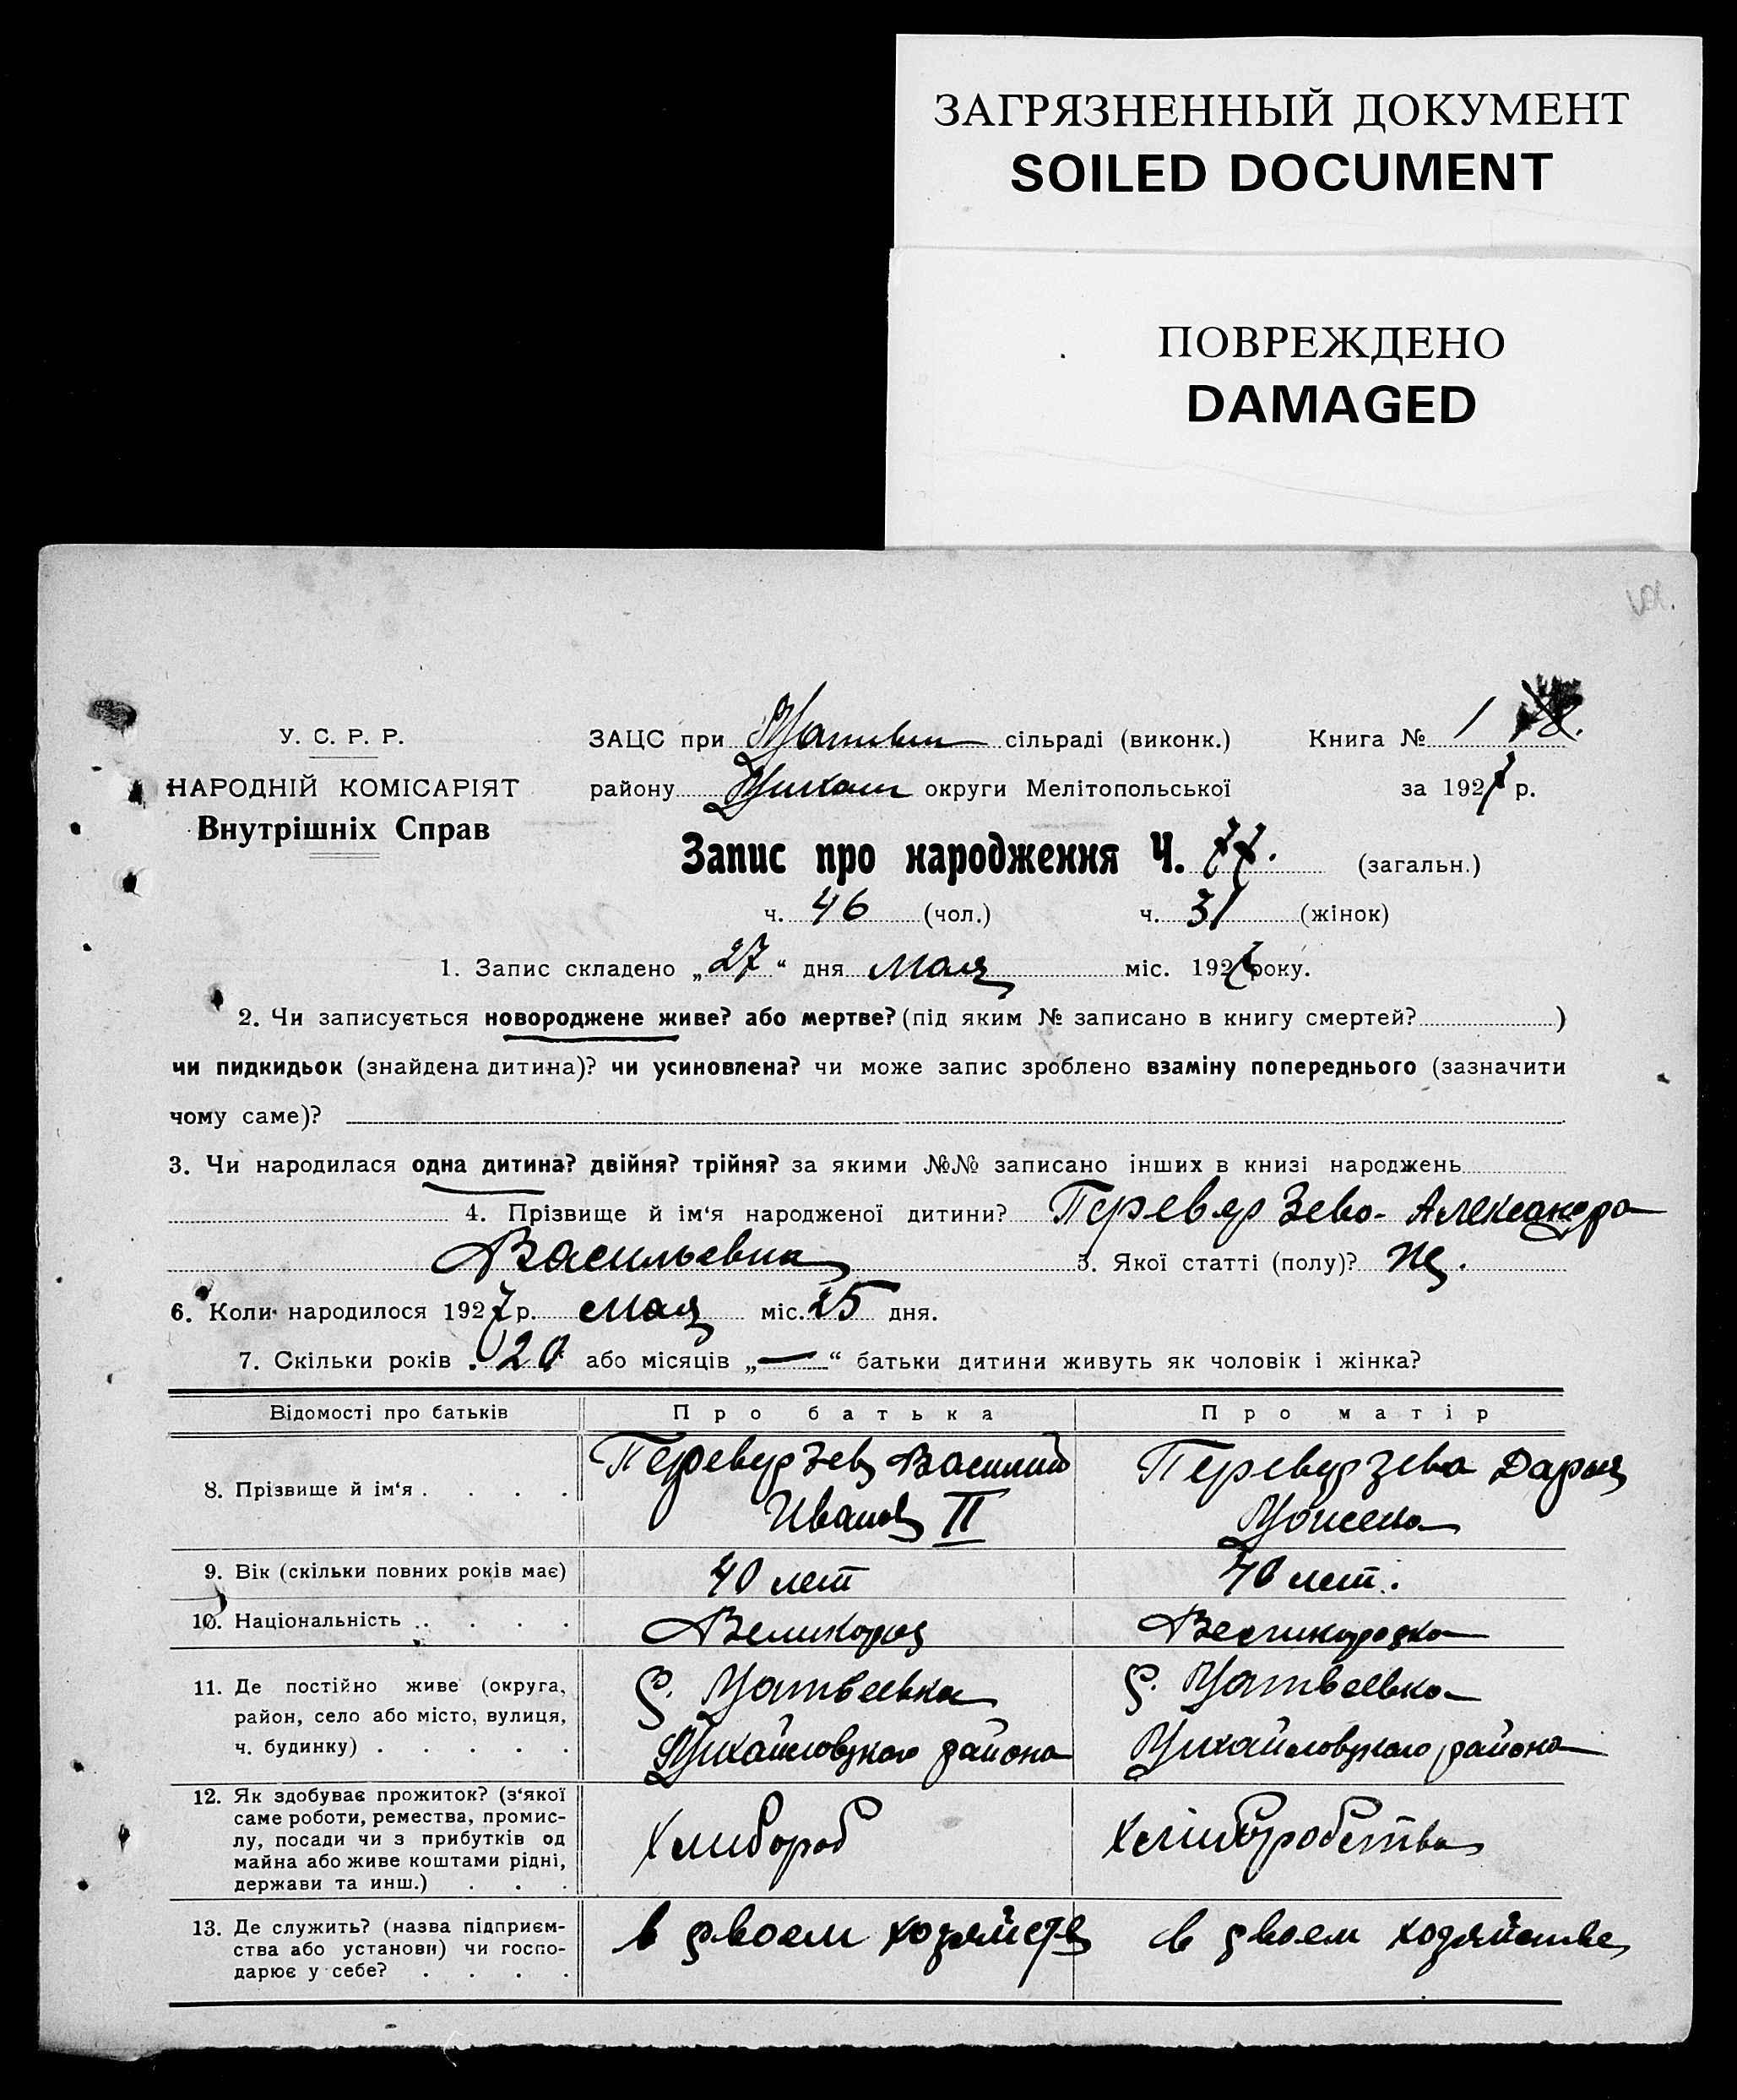 ЗАГРЯЗНЕННЫЙ ДОКУМЕНТ
SOILED DOCUMENT
ПОВРЕЖДЕНО
DAMAGED
У. С. Р. Р.
НАРОДНІЙ КОМІСАРІЯТ
Внутрішніх Справ
ЗАЦС при Матвеев сільраді (виконк.) Книга № 1
району Михайл округи Мелітопольської за 1927 р.
Запис про народження Ч. 77. (загальн.)
ч. 46 (чол.) ч. 31 (жінок)
1. Запис складено „27“ дня мая міс. 1927 року.
2. Чи записується новороджене живе? або мертве? (під яким № записано в книгу смертей? )
чи пидкидьок (знайдена дитина)? чи усиновлена? чи може запис зроблено взаміну попереднього (зазначити
чому саме)?
3. Чи народилася одна дитина? двійня? трійня? за якими №№ записано інших в книзі народжень
4. Прізвище й ім'я народженої дитини? Переверзева Александра
Васильевна 5. Якої статті (полу)? ж.
6. Коли народилося 1927 р. мая міс. 25 дня.
7. Скільки років 20 або місяців „—“ батьки дитини живуть як чоловік і жінка?
Відомості про батьків Про батька Про матір
8. Прізвище й ім'я . . . . Переверзев Василий Переверзева Дарья
Иванов II Моисеева
9. Вік (скільки повних років має) 40 лет 40 лет.
10. Національність . . . . Великорос Великороска
11. Де постійно живе (округа, с. Матвеевка с. Матвеевка
район, село або місто, вулиця,
ч. будинку) . . . . . Михайловского района Михайловского района
12. Як здобуває прожиток? (з'якої
саме роботи, ремества, промис-
лу, посади чи з прибутків од Хлибороб Хлиборобства
майна або живе коштами рідні,
держави та инш.) . . .
13. Де служить? (назва підприєм- в своем хозяйстве в своем хозяйстве
ства або установи) чи госпо-
дарює у себе? . . . .